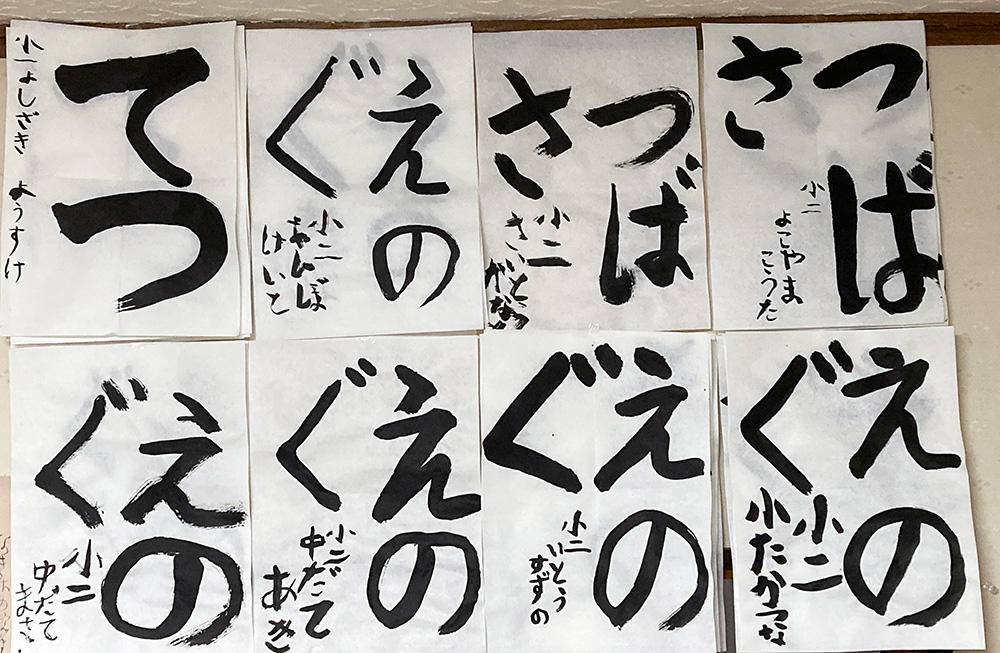 てつ
小一 よしざき ようすけ
えの
ぐ
小二
けいと
つば
さ
小二
さいとう
つば
さ
小二
よこやま
こうた
えの
ぐ
小二
中だて
えの
ぐ
小二
中だて
あき
えの
ぐ
小二
いとう
すずの
えの
ぐ
小二